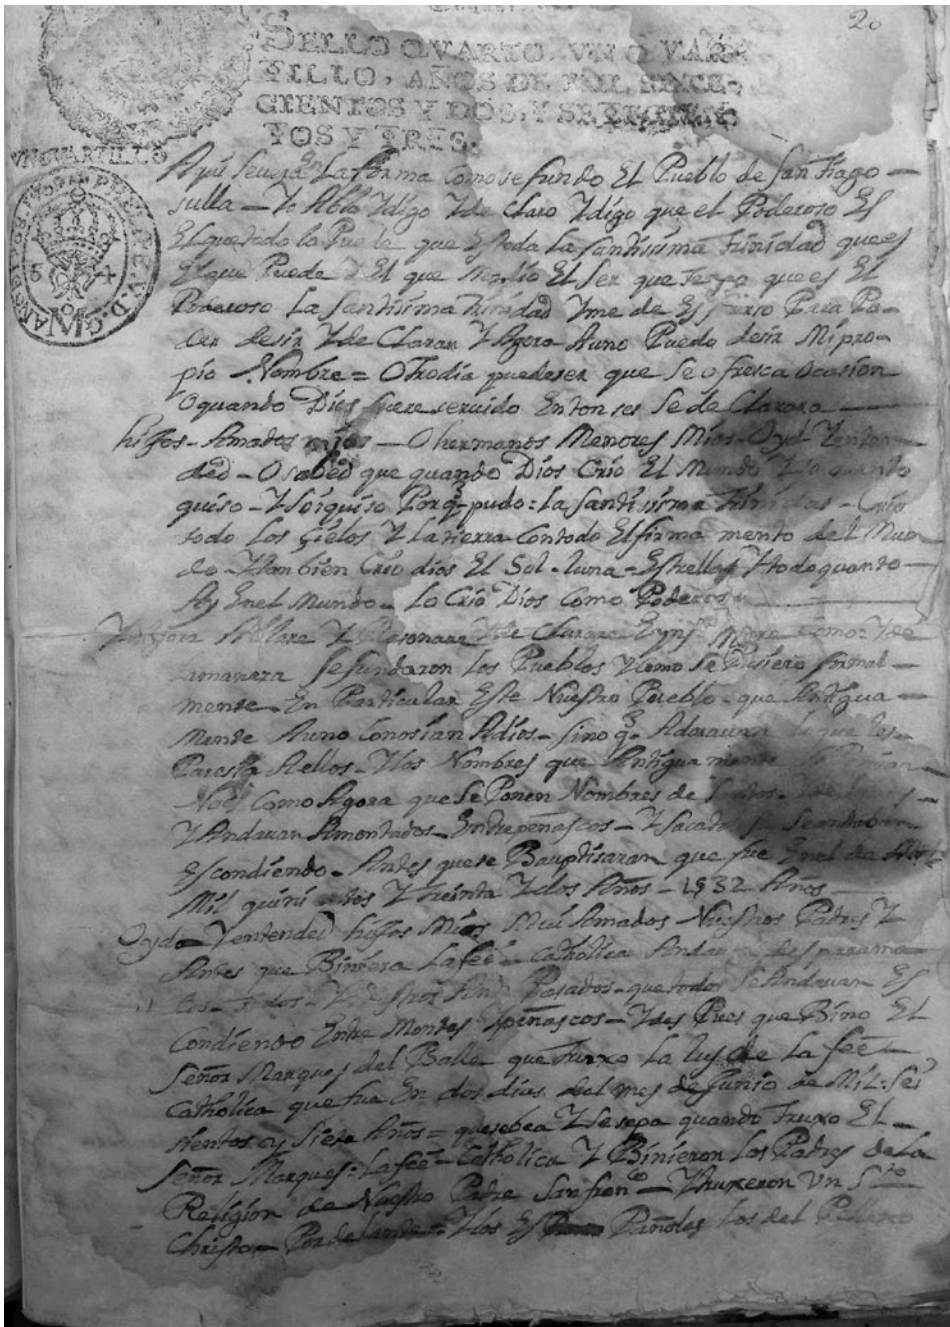 20
SELLO QVARTO, VN QVAR-
TILLO, AÑOS DE MIL SETE-
CIENTOS Y DOS, Y SETECIEN-
TOS Y TRES.
VN QVARTILLO
Aqui Severa En La forma Como se fundo El Pueblo de San Tiago
sulla — Yo Ablo Ydigo Yde Claro Ydigo que el Poderoso Es
El que todo lo Puede que Es toda La santissima trinidad que es
El que Puede El que El ser que Tengo que es El
Poderoso La santissima trinidad Yme de Esfuerso Para Po-
der desir Yde Clarar Y Agora Auno Puedo desir Mi pro-
pio Nombre = Otro dia puede ser que Se ofresca Ocasion
O quando Dios fuere servido Enton ses Se de Clarara
hijos - Amados mios — O hermanos Menores Mios - Oyd Y enten-
ded - O sabed que quando Dios Crio El Mundo Y lo quanto
quiso - Y lo quiso Porq. pudo: la santissima trinidad - Crio
todo Los Cielos Y la tierra Contodo El firma mento del Mun-
do - Y tan bien Crio dios El Sol - luna - Estrellas Y todo quanto —
Ay Enel Mundo - Lo Crio Dios Como Poderoso
Y Agora Ablare Y Rasonare Yde Clarare Como: Yde
lamanera Se fundaron los Pueblos Y Como Se hisiero formal —
mente - En Particular Este Nuestro Pueblo - que Antigua —
Mente Auno Conosian Adios - Sino q. Adoravan lo que les
Paresia Aellos - Y los Nombres que Antigua mente Se Ponian
No es Como Agora que Se Ponen Nombres de Santos -
Y Andavan Amontados - Entre peñascos - Y
Escondiendo - Antes que se Bauptisaran que fue Enel de
Mil quini entos Y treinta Y dos Años - 1532 Años
Oyd - Y entended hijos Mios Mui Amados Nuestros Padres Y
Antes que Biniera La feê - Catholica Andavan desparrama
dos - todos - Ante Pasados - que todo Se Andavan Es
Condiendo Entre Montes Y peñascos - Y des Pues que Bino El
Señor Marques del Balle que Truxo La lus de La feê
Catholica que fue En dos dias del mes de Junio de Mil: Sei
sientos y Siete Años = que se bea Y Se sepa quando Truxo El —
Señor Marques: La feê - Catholica Y Binieron Los Padres de la
Religion de Nuestro Padre San fran.co — Y truxeron Vn S.to
Christo — Por delante = Y los Es Pañoles los del